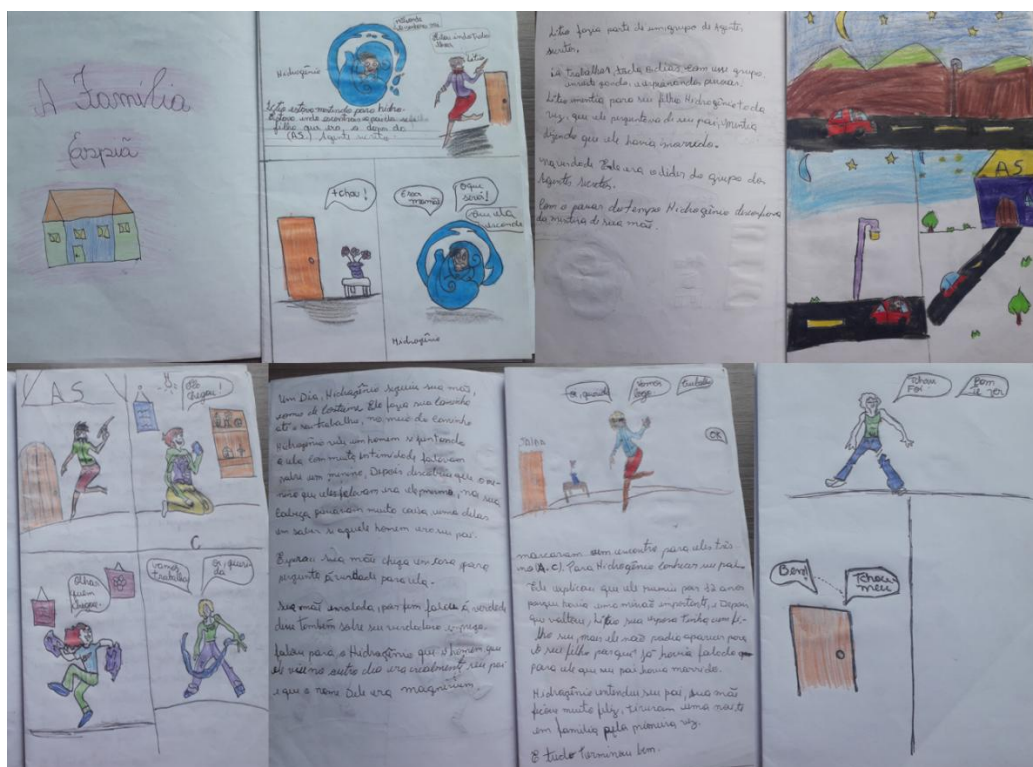 A Família
Espiã
não conta
Estou indo Trabalhar
Lítio
Hidrogênio
Lítio estava mentindo para hidro-
filho que era o dono da
(AS.) Agente secreto
tchau!
Essa
mamãe
O que
será!
ela
esconde
Hidrogênio
Lítio fazia parte de um grupo de Agentes
secretos.
ia trabalhar, todo o dias, com esse grupo,
investigando, e espionando pessoas.
Lítio mentia para seu filho Hidrogênio toda
vez, que ele perguntava de seu pai, Mentia
dizendo que ele havia morrido.
na verdade Ele era o líder do grupo dos
Agentes secretos.
Com o passar do tempo Hidrogênio desconfiava
da mentira de sua mãe.
AS
AS
chegou!
C
Olha
quem
chegou
vamos
trabalhar
Oi, queri
da
Um Dia, Hidrogênio seguiu sua mãe,
como de Costume Ele fazia seu Caminho
até o seu trabalho, no meio do Caminho
Hidrogênio viu um homem
Com muita intimidade falavam
sobre um menino, Depois descobriu que o me-
nino que eles falavam era ele mesmo, na sua
Cabeça muita coisa uma delas
em saber si aquele homem era seu pai.
Esperou sua mãe chega em casa para
pergunta á verdade para ela.
Sua mãe enrolada, por fim falou á verdade
disse também sobre seu verdadeiro emprego.
falou para o Hidrogênio que o homem que
ele viu no outro dia era realmente seu pai
e que o nome Dele era magnésium.
Oi, querido
Vamos
logo
trabalhar
OK
marcaram um encontro para eles três
na (A.C). Para Hidrogênio conhecer seu pai.
Ele explicou que ele sumiu por 12 anos
porque havia uma missão importante, e Depois
que voltou, Lítio sua esposa tinha um fi-
lho seu, mais ele não podia aparecer para
o seu filho porque já havia falado
para ele que seu pai havia morrido.
Hidrogênio entendeu seu pai, sua mãe
ficou muito feliz, tiraram uma noite
em família pela primeira vez.
E tudo terminou bem.
Tchau
Foi
Bom
te ver
Bem!
Tchau
meu